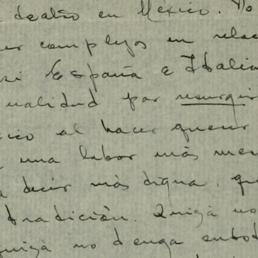 deatro en Mexico. No
er complejos en relac
si España e Italia
ualidad por resurgir
ico al hacer querer
una labor más mer
a decir más digna, qu
tradición. Quizá no
quizá no tenga